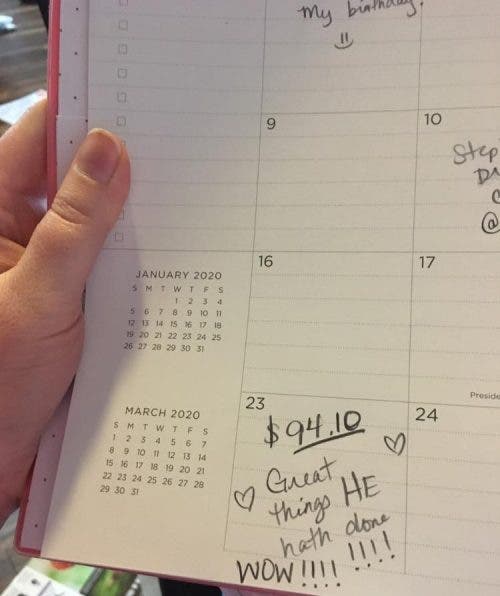 My birthday!
9
10
Step
16
17
Preside
JANUARY 2020
S M T W T F S
1 2 3 4
5 6 7 8 9 10 11
12 13 14 15 16 17 18
19 20 21 22 23 24 25
26 27 28 29 30 31
MARCH 2020
S M T W T F S
1 2 3 4 5 6 7
8 9 10 11 12 13 14
15 16 17 18 19 20 21
22 23 24 25 26 27 28
29 30 31
23
$94.10
Great
things HE
hath done
WOW!!!! !!!!
24